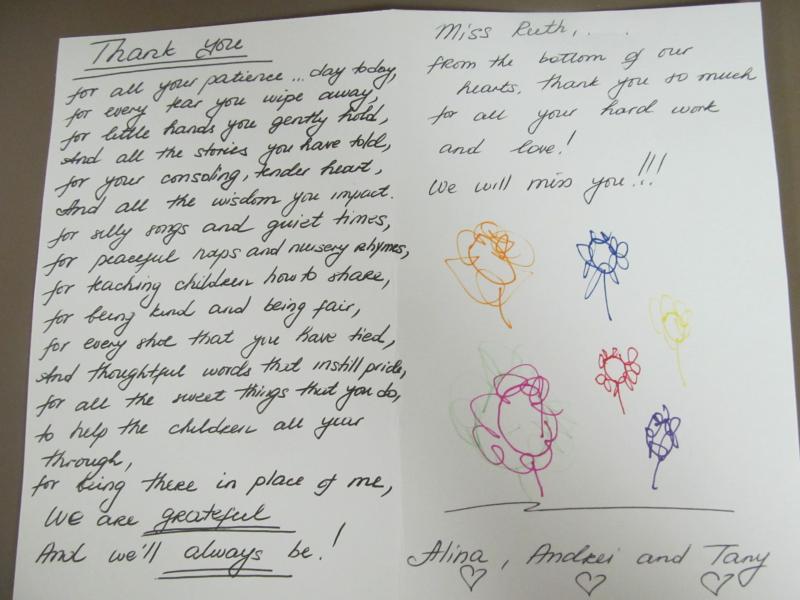 Thank you
for all your patience ... day today,
for every tear you wipe away,
for little hands you gently hold,
And all the stories you have told,
for your consoling, tender heart,
And all the wisdom you impact.
for silly songs and quiet times,
for peaceful naps and nursery rhymes,
for teaching children how to share,
for being kind and being fair,
for every shoe that you have tied,
And thoughtful words that instill pride,
for all the sweet things that you do,
to help the children all year
through,
for being there in place of me,
We are grateful
And we'll always be!
Miss Ruth,
from the bottom of our
hearts, thank you so much
for all your hard work
and love!
We will miss you!!!
Alina, Andrei and Tany